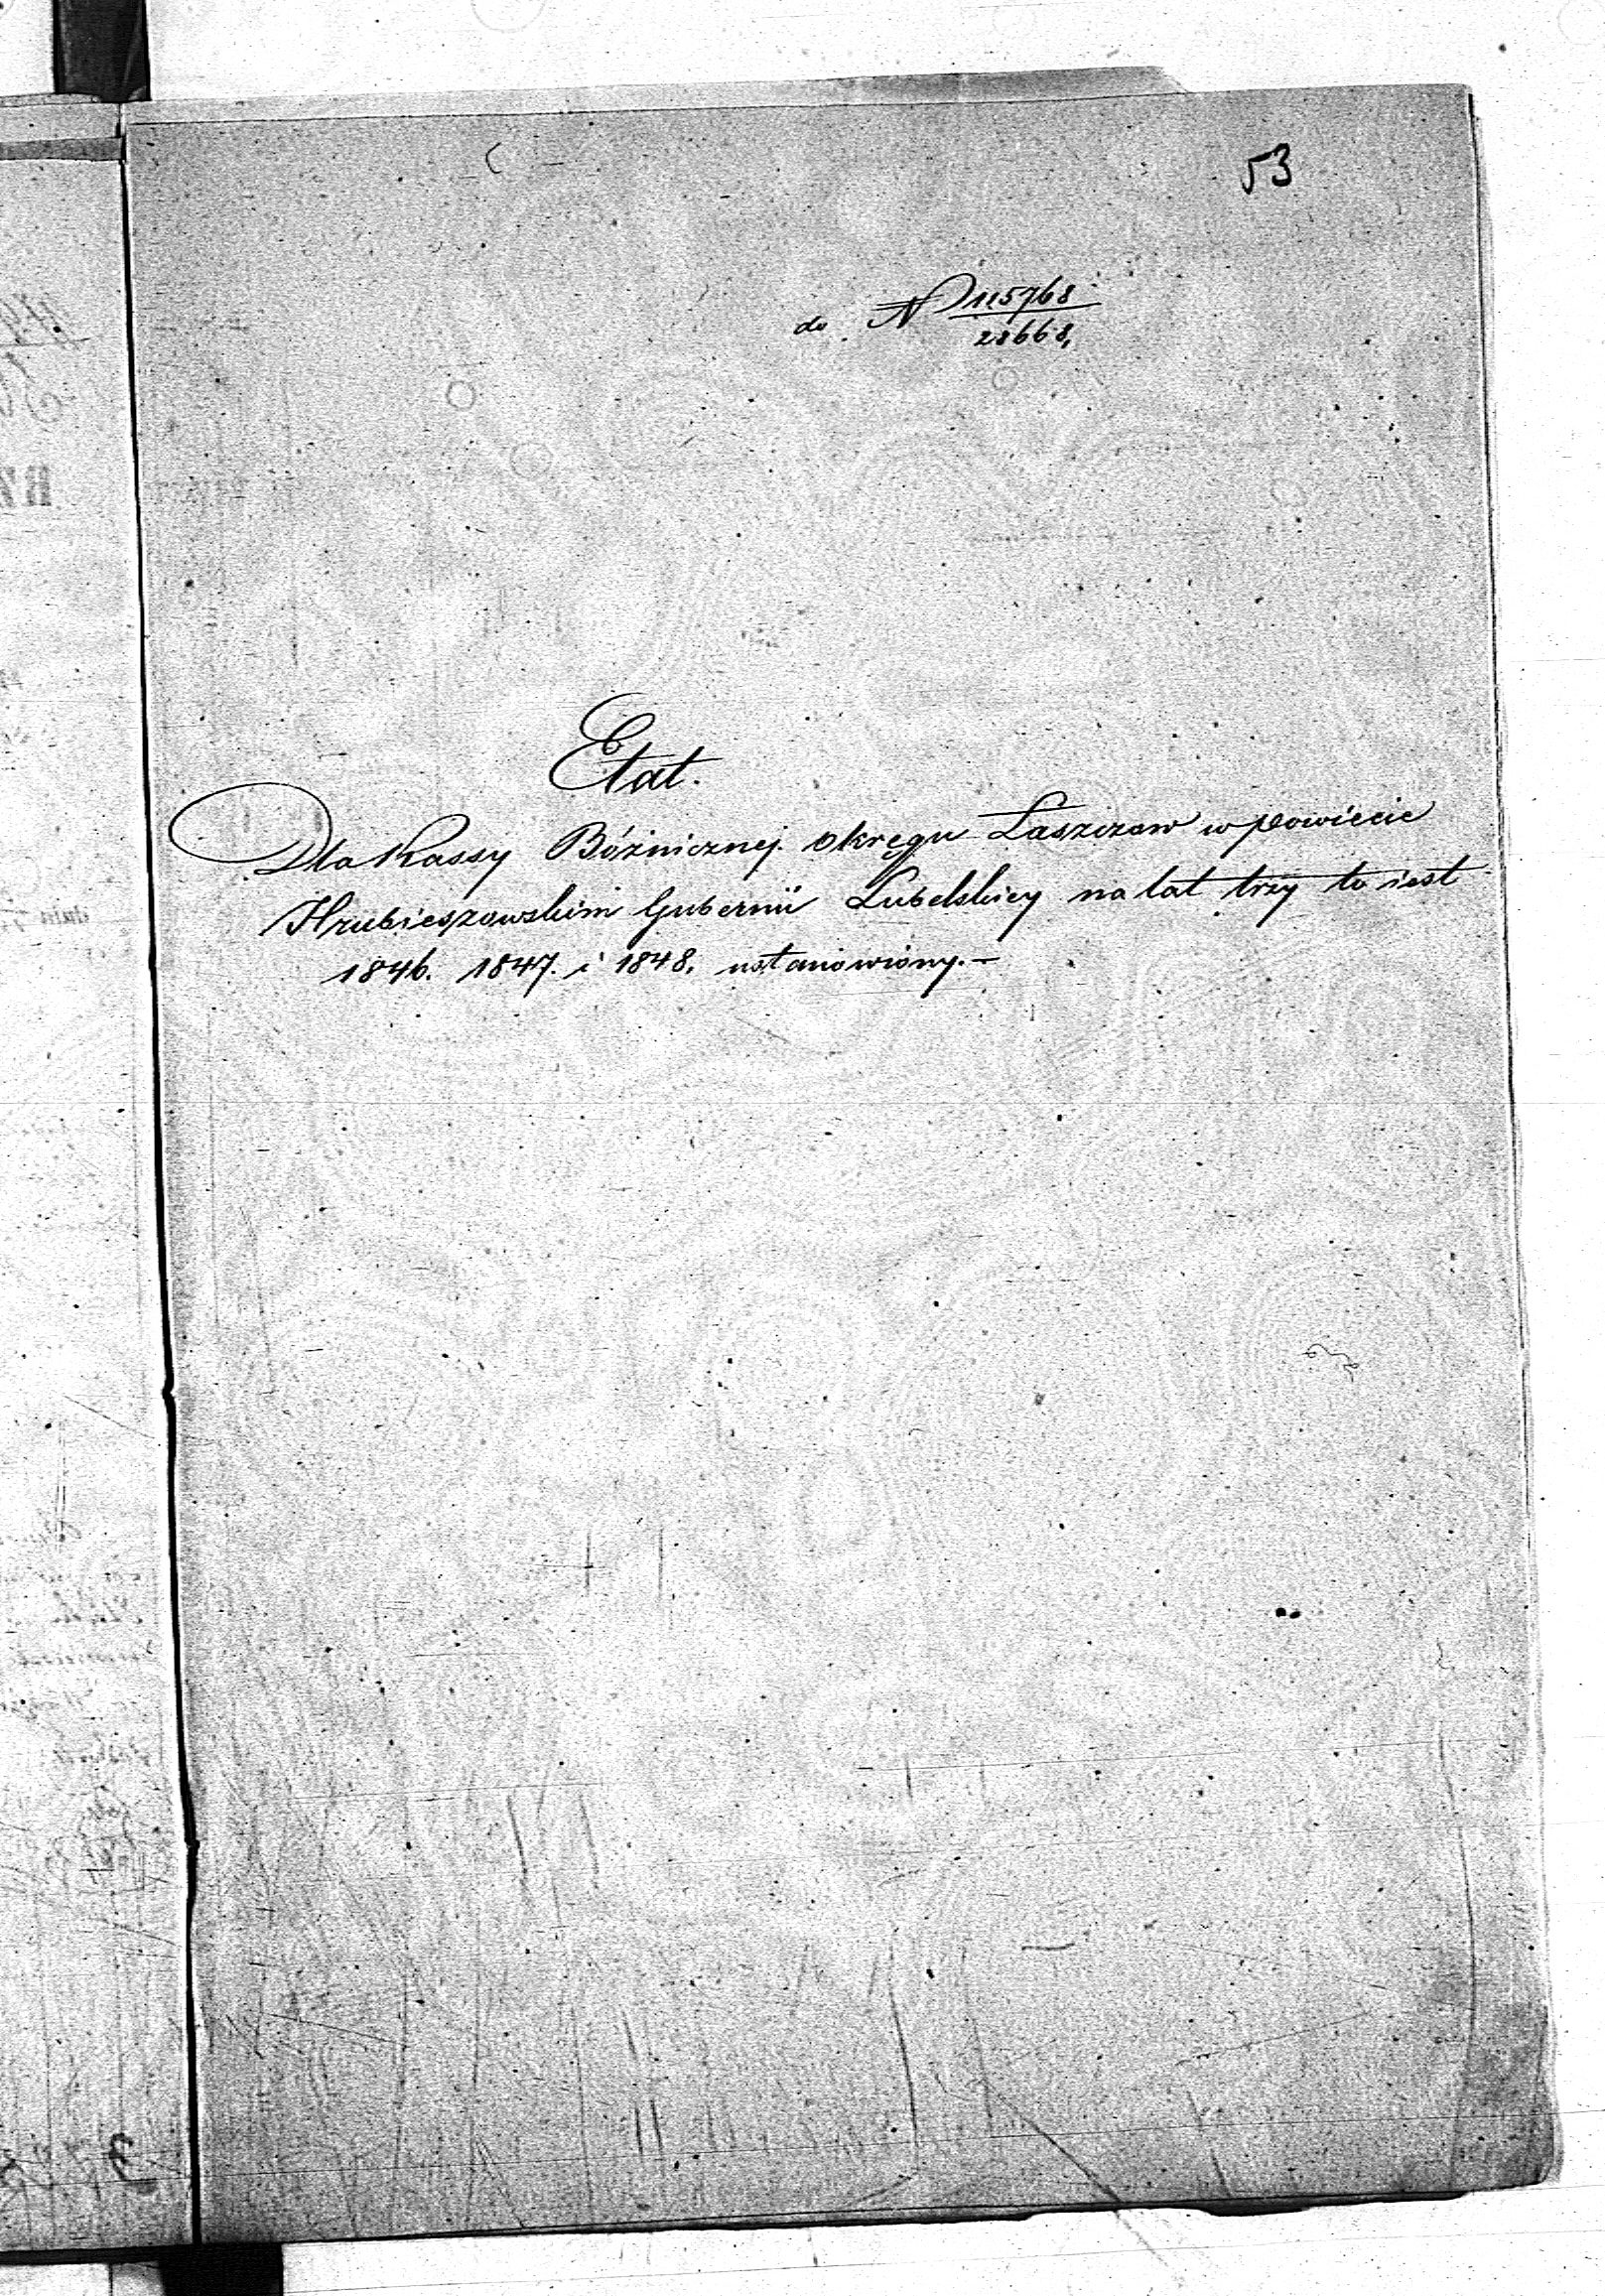 53
do N 115768
28668,
Etat.
Dla Kassy Bóźnicznej okręgu Łaszczow w powiecie
Hrubieszowskim Gubernii Lubelskiey na lat trzy to iest
1846. 1847. i 1848. ustanowiony.—